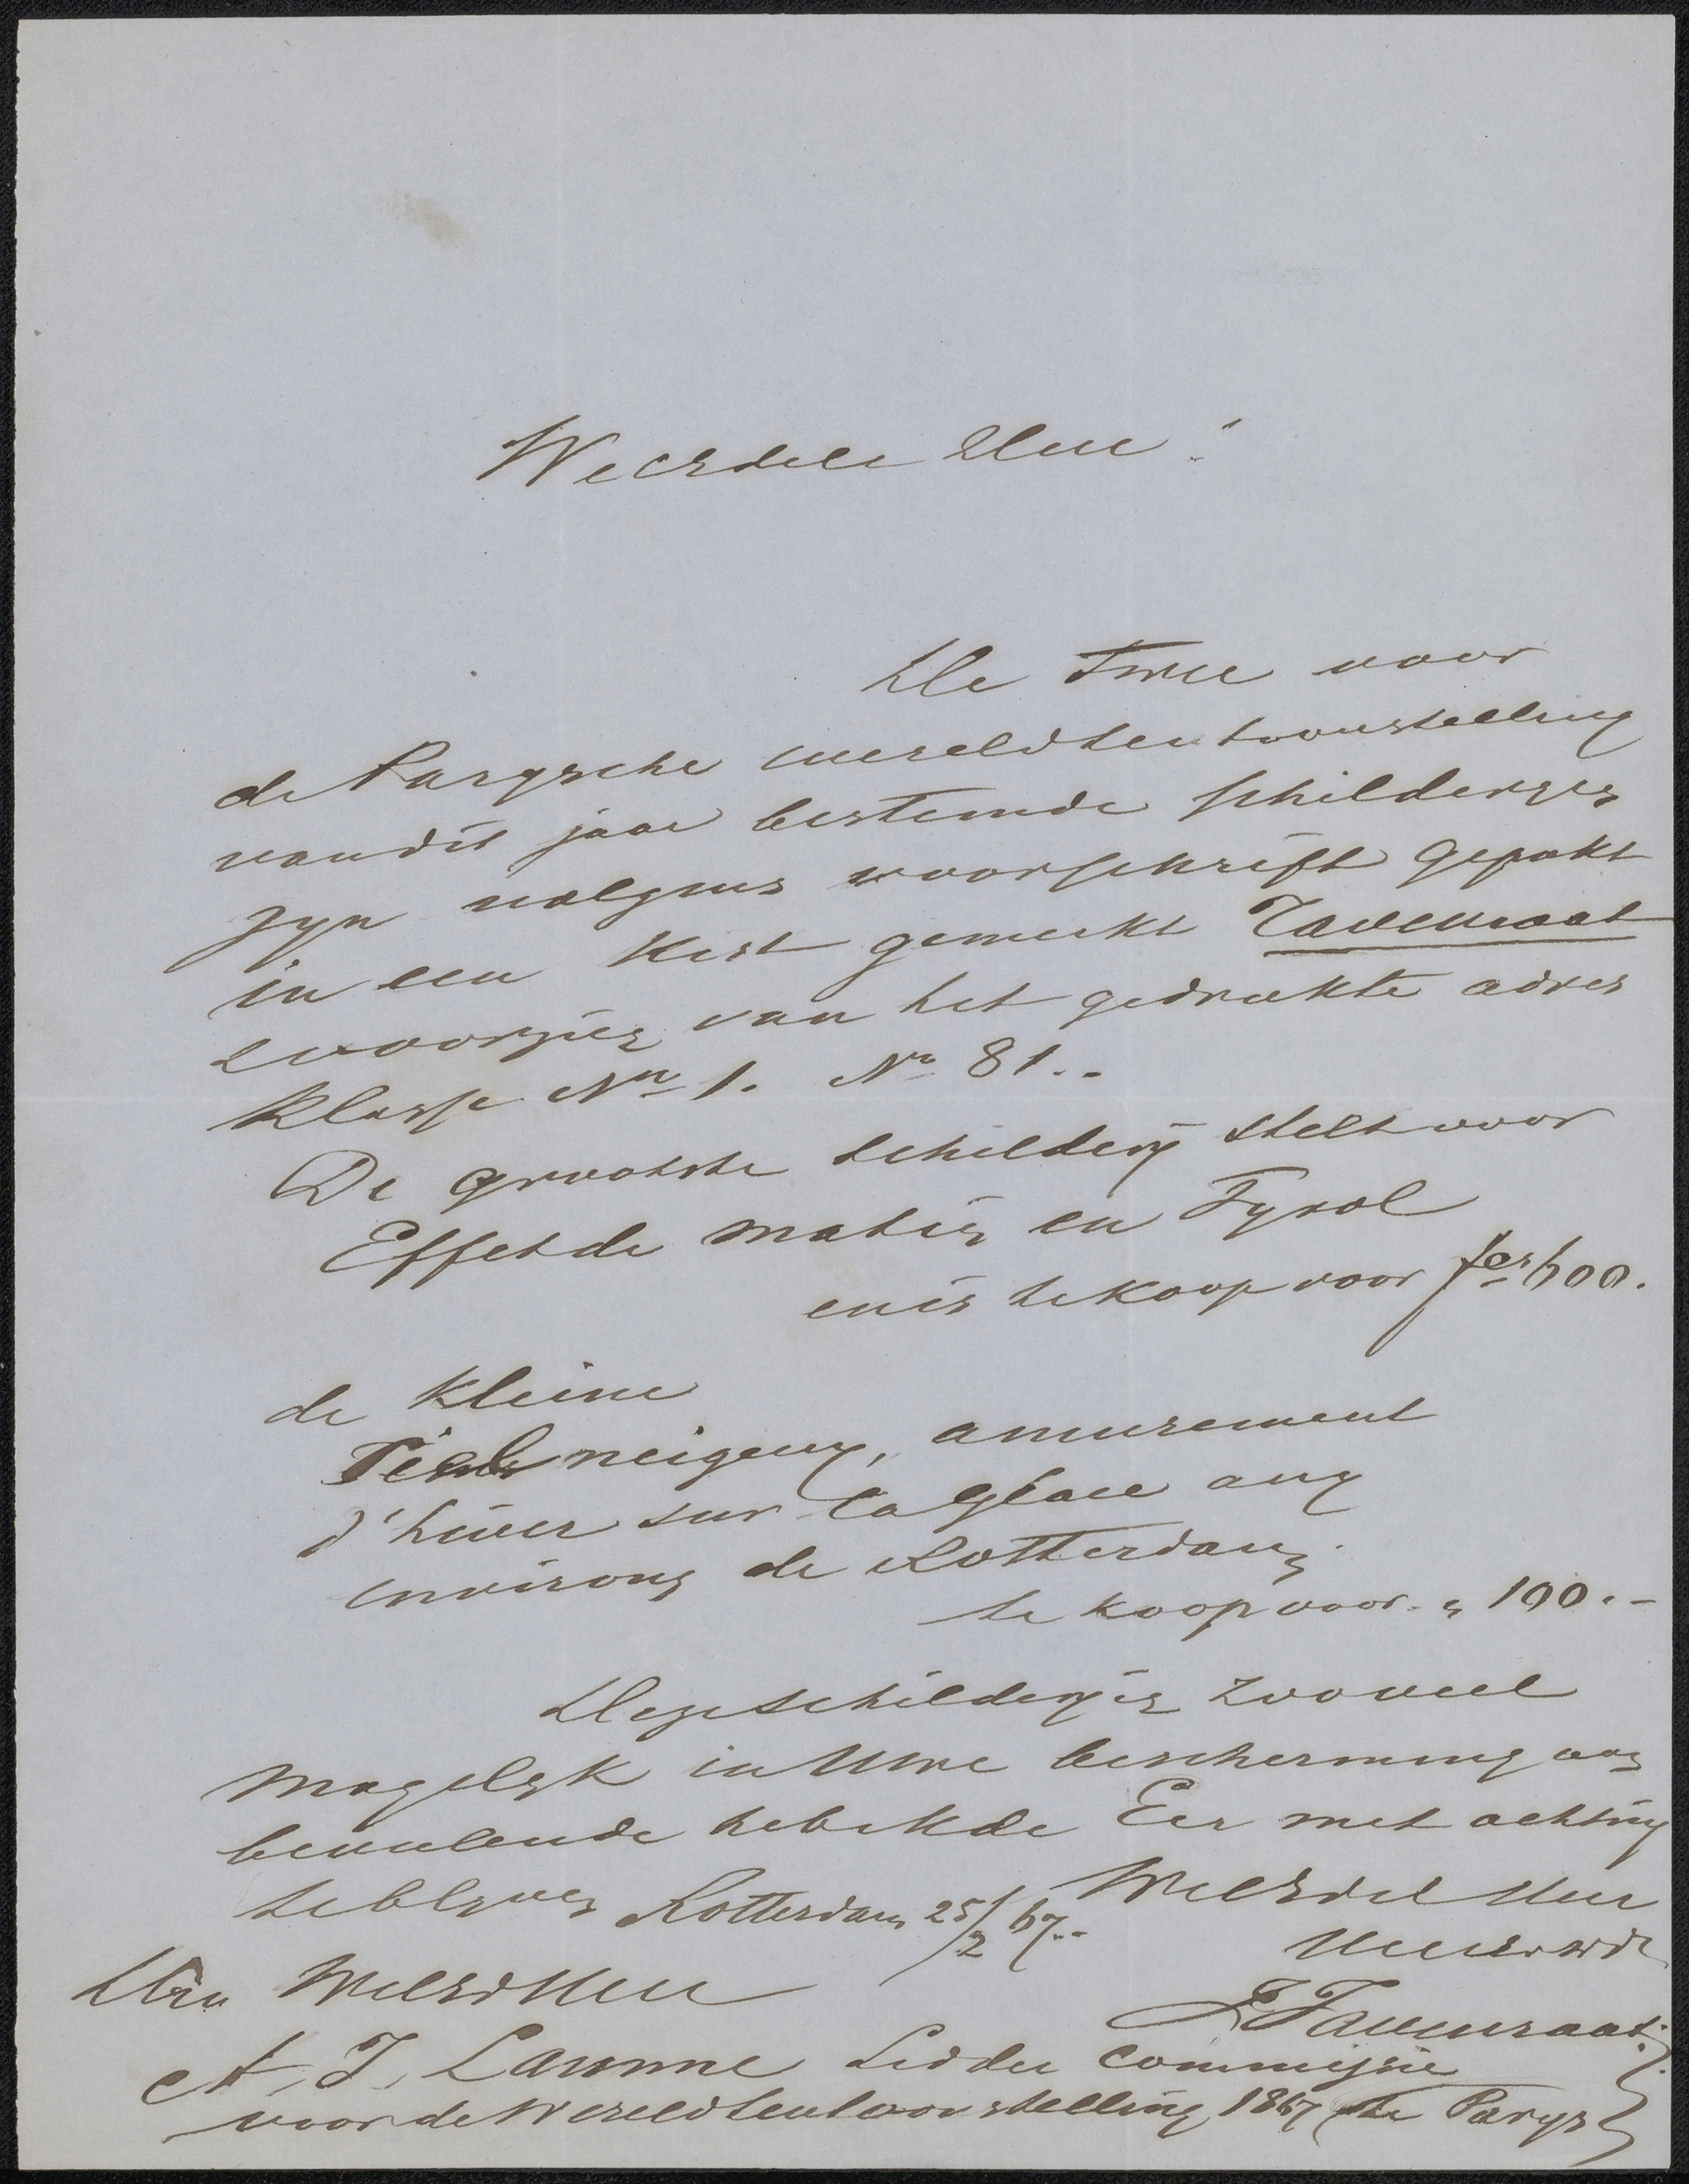 Weledele Heer!
De Twee voor
de Parysche wereldtentoonstelling
van dit jaar bestemde schilderyen
zyn volgens voorschrift gepakt
in een Kist gemerkt Tavenraat
voorzien van het gedrukte adres
Klasse No 1. No 81..
De grootste schildery stelt voor
Effet de matin en Tyrol
en is te koop voor fcs 600.
de kleine
Ciel neigeux, amusement
d'hiver sur la glace aux
environs de Rotterdam
te koop voor „ 100.-
Deze schilderyen zooveel
mogelyk in Uwe bescherming aan
bevelende heb ik de Eer met achting
te blyven Rotterdam 25/2 67.. Weledel Heer
J Tavenraat
Den Weled Heer
A. J. Lamme Lid der Commissie
voor de Wereldtentoonstelling 1867 te Parys